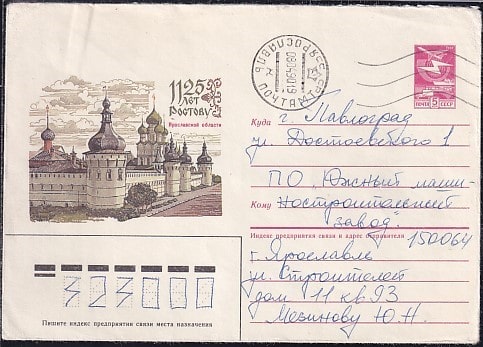 1125
ЛЕТ
РОСТОВУ
Ярославской области
ЯРОСЛАВЛЬ
ПОЧТАМТ
ПОЧТА СССР
5
Куда г. Павлоград
ул. Достоевского 1
ПО "Южный маши-
Кому ностроительный
завод".
Индекс предприятия связи и адрес отправителя 150064
г. Ярославль
ул. Строителей
дом 11 кв. 93
Мезинову Ю.Н.
323000
Пишите индекс предприятия связи места назначения